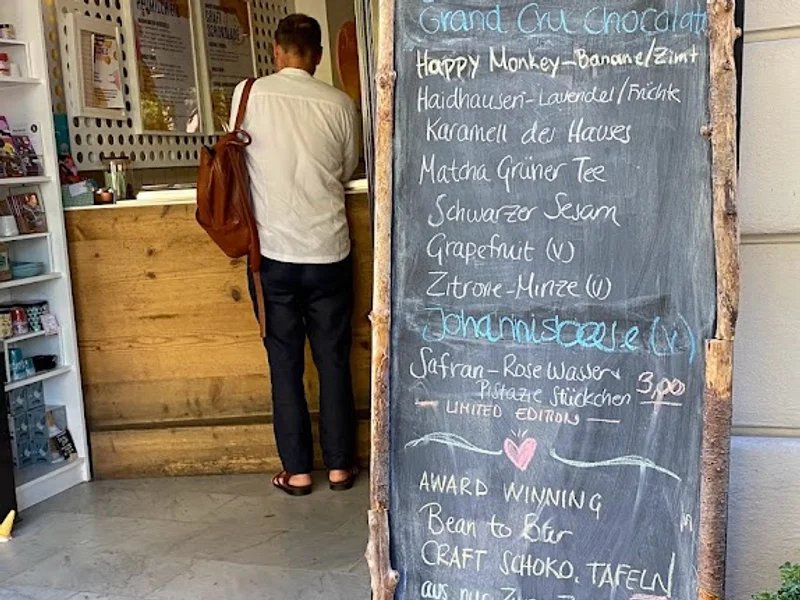 Grand Cru Chocolate
Happy Monkey-Banane/Zimt
Haidhausen-Lavendel/Früchte
Karamell des Hauses
Matcha Grüner Tee
Schwarzer Sesam
Grapefruit (V)
Zitrone-Minze (V)
Johannisbeere (V)
Safran-Rosewasser
Pistazie Stückchen 3,00
LIMITED EDITION
AWARD WINNING
Bean to Bar
CRAFT SCHOKO. TAFELN
aus nur